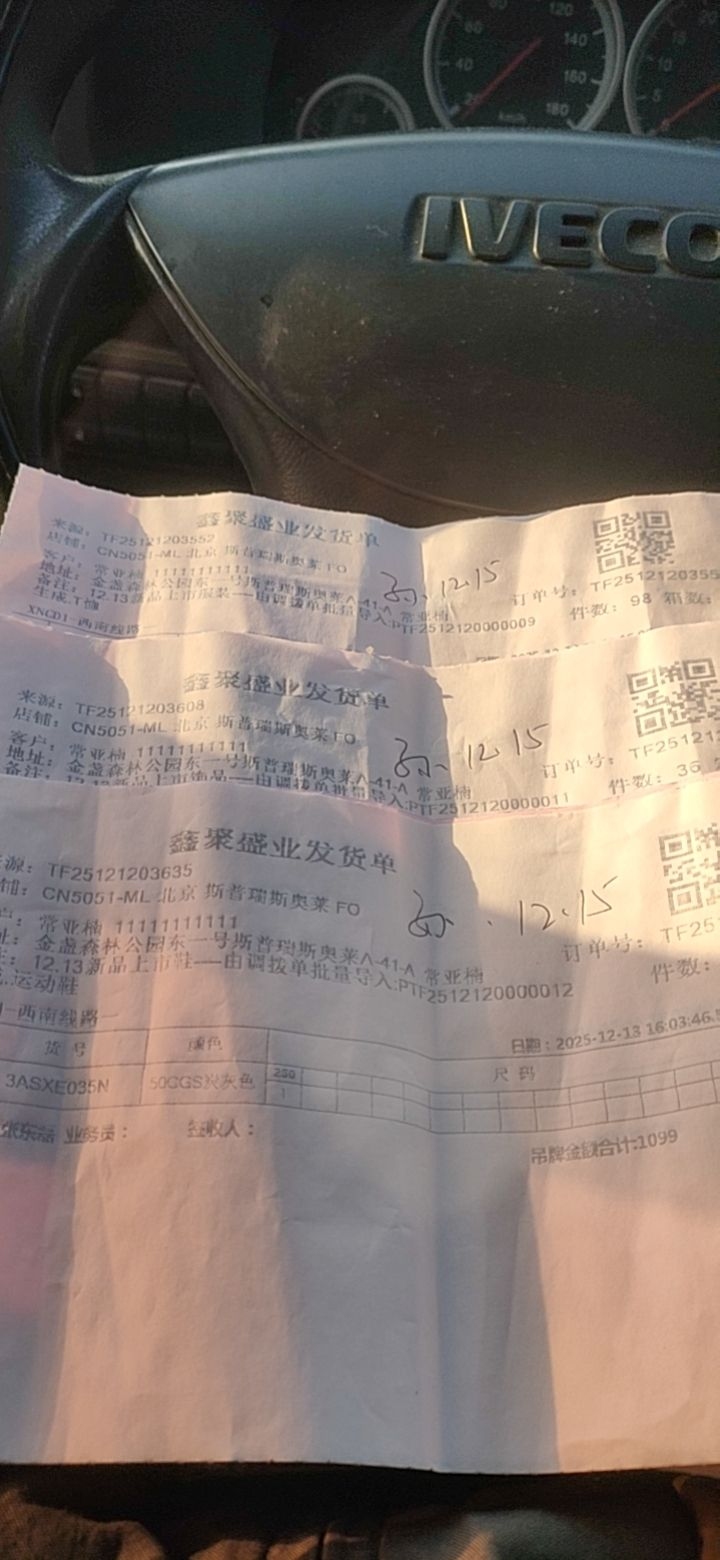 120
80
140
60
40
160
20
180
km/h
IVECO
鑫聚盛业发货单
来源: TF25121203552
店铺: CN5051-ML 北京 斯普瑞斯奥莱 FO
孙. 12.15
订单号: TF2512120355
客户: 常亚楠 11111111111
地址: 金盏森林公园东一号斯普瑞斯奥莱A-41-A 常亚楠
件数: 98 箱数:
备注: 12.13新品上市服装——由调拨单批量导入:PTF2512120000009
生成.T恤
XNCD1-西南线路
鑫聚盛业发货单
来源: TF25121203608
店铺: CN5051-ML 北京 斯普瑞斯奥莱 FO
孙. 12.15
订单号: TF251212
客户: 常亚楠 11111111111
地址: 金盏森林公园东一号斯普瑞斯奥莱A-41-A 常亚楠
件数: 36
备注: 12.13新品上市饰品——由调拨单批量导入:PTF2512120000011
鑫聚盛业发货单
来源: TF25121203635
店铺: CN5051-ML 北京 斯普瑞斯奥莱 FO
孙. 12.15
订单号: TF25
户: 常亚楠 11111111111
址: 金盏森林公园东一号斯普瑞斯奥莱A-41-A 常亚楠
件数:
: 12.13新品上市鞋——由调拨单批量导入:PTF2512120000012
.运动鞋
1-西南线路
日期: 2025-12-13 16:03:46.
货号 颜色 尺码
3ASXE035N 50CGS炭灰色 230
1
业务员: 签收人:
吊牌金额合计:1099